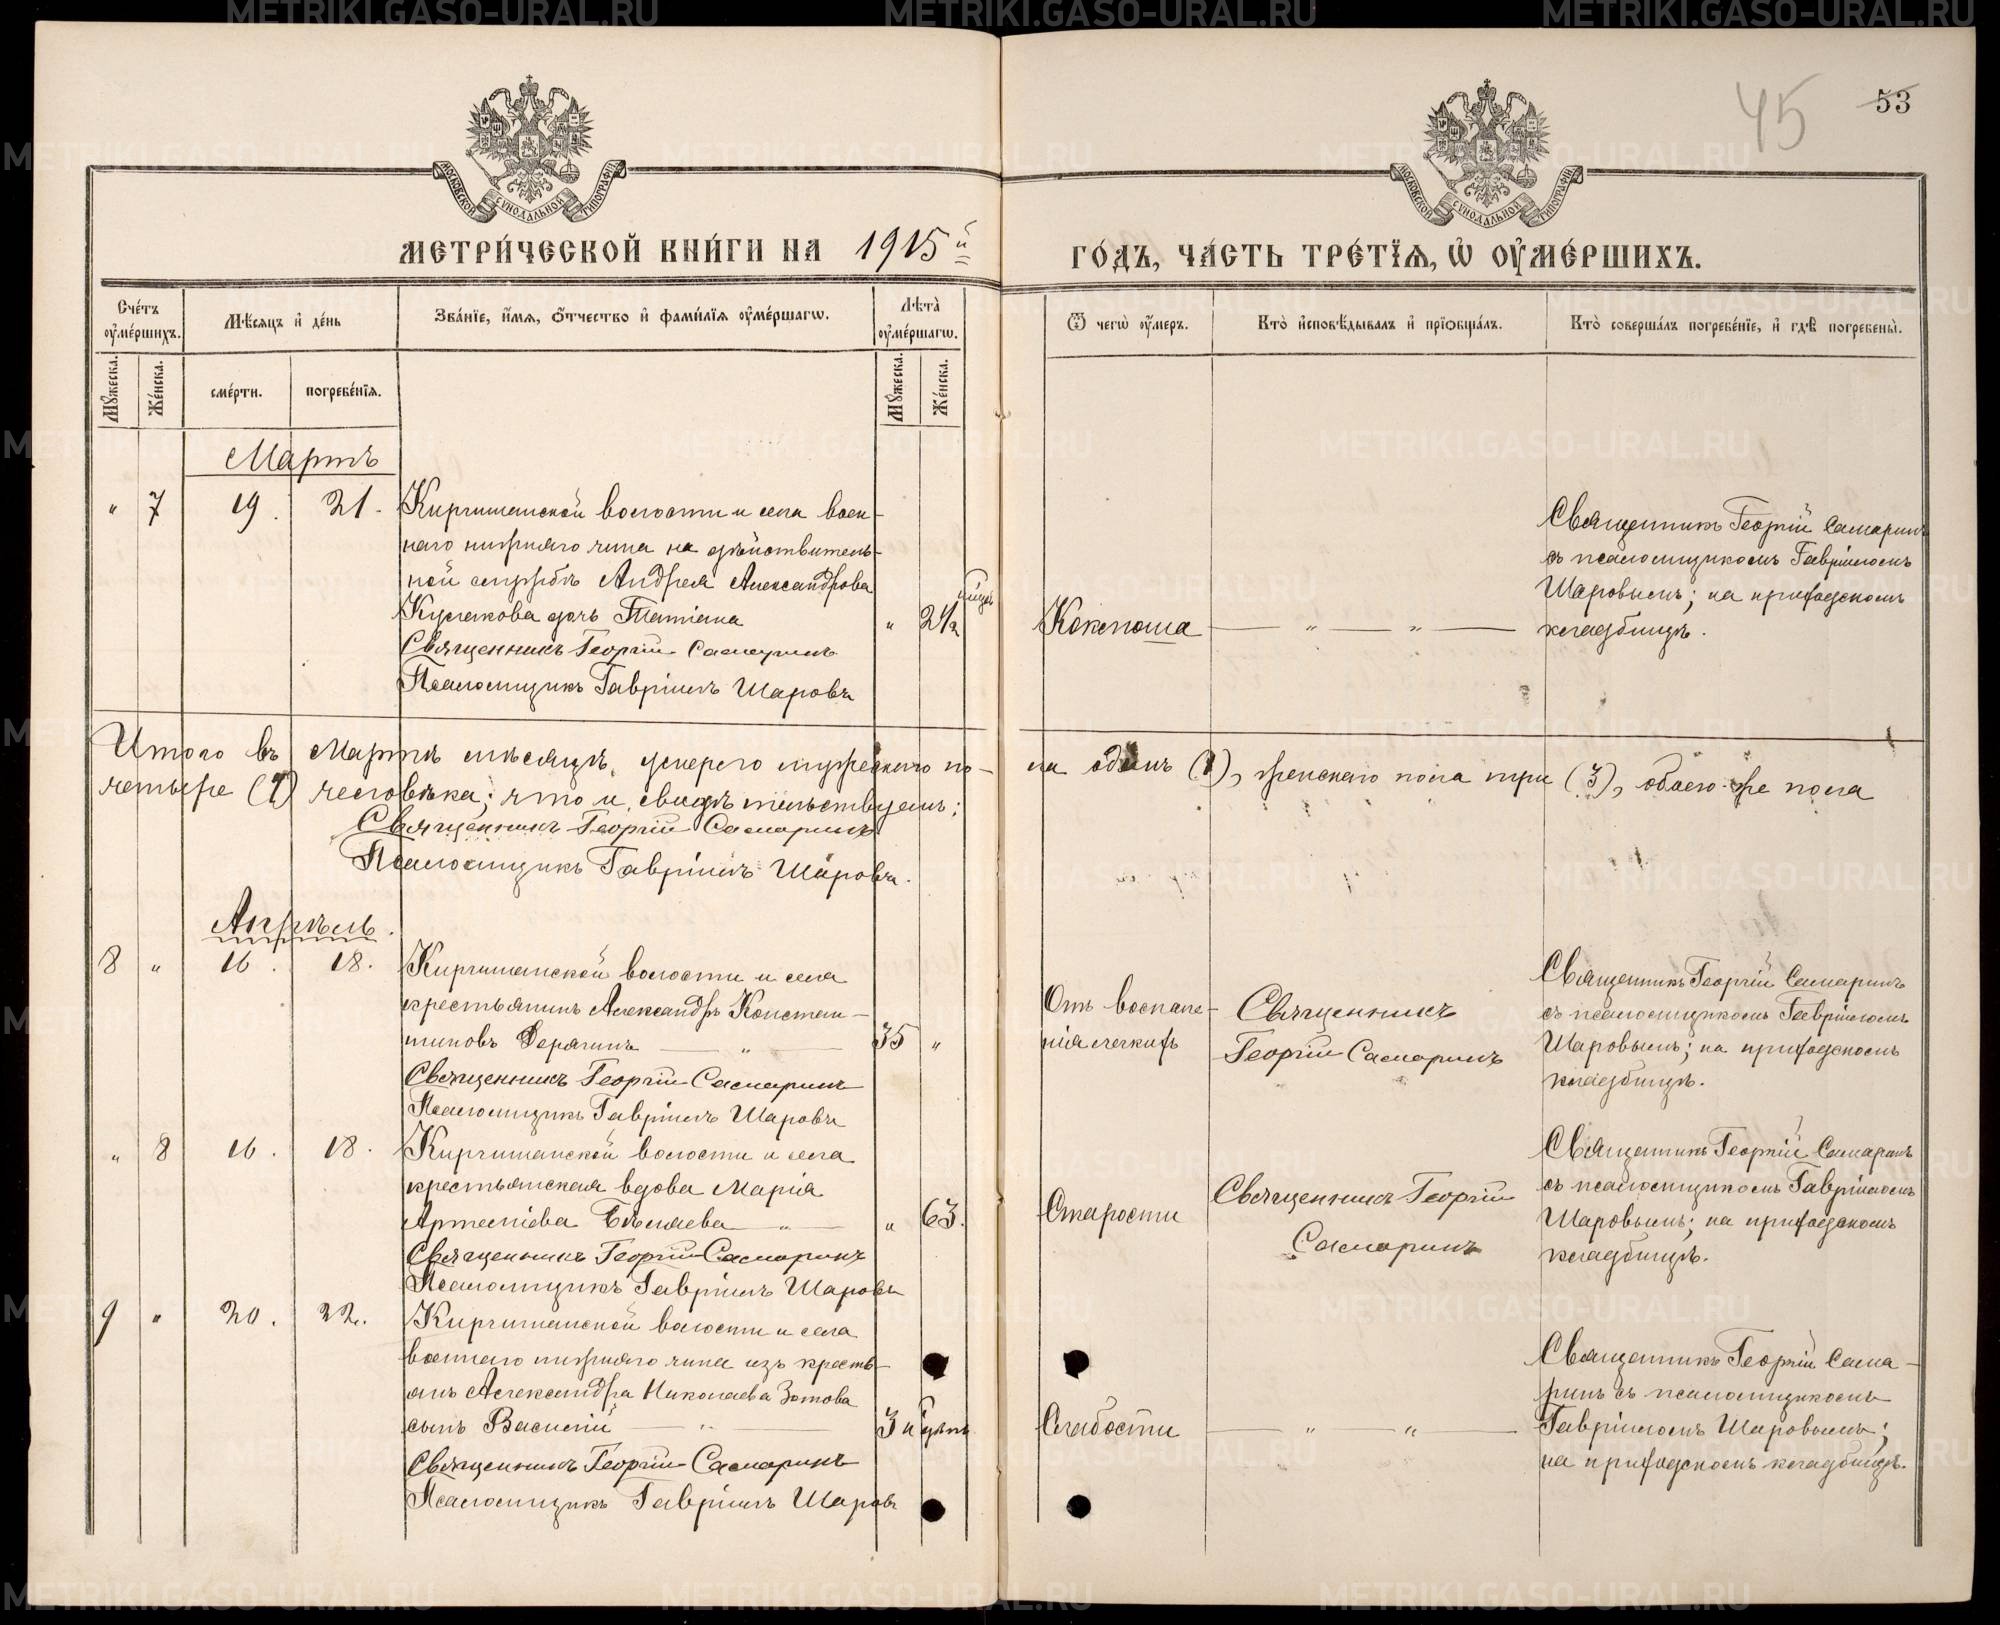 45
53
МОСКОВСКОЙ СѴНОДАЛЬНОЙ ТИПОГРАФІИ
МОСКОВСКОЙ СѴНОДАЛЬНОЙ ТИПОГРАФІИ
МЕТРИ́ЧЕСКОЙ КНИ́ГИ НА 1915й
ГО́ДЪ, ЧА́СТЬ ТРЕ́ТІѦ, Ѽ ОУ҆МЕ́РШИХЪ.
Сче́тъ оу҆ме́ршихъ.
Мѣ́сѧцъ и҆ де́нь
Зва́нїе, и҆́мѧ, ѻ҆́тчество и҆ фами́лїѧ оу҆ме́ршагѡ.
Лѣ́та оу҆ме́ршагѡ.
Ѿ чегѡ̀ оу҆́меръ.
Кто̀ и҆сповѣ́дывалъ и҆ прїѻбща́лъ.
Кто̀ соверша́лъ погребе́нїе, и҆ гдѣ̀ погребены̀.
Мꙋ́жеска.
Же́нска.
сме́рти.
погребе́нїѧ.
Мꙋ́жеска.
Же́нска.
Мартъ
" 7 19. 21. Киргишанской волости и села воен-
наго нижняго чина на дѣйствитель-
ной службѣ Андрея Александрова
Кулакова дочь Татіана " 2½
Священникъ Георгій Самаринъ
Псаломщикъ Гавріилъ Шаровъ
Коклюша — " — " —
Священникъ Георгій Самаринъ
съ псаломщикомъ Гавріиломъ
Шаровымъ; на приходскомъ
кладбищѣ.
Итого въ Мартѣ мѣсяцѣ умерло мужескаго по-
ла одинъ (1), женскаго пола три (3), обоего же пола
четыре (4) человѣка; что и свидѣтельствуемъ:
Священникъ Георгій Самаринъ
Псаломщикъ Гавріилъ Шаровъ.
Апрѣль.
8 " 16. 18. Киргишанской волости и села
крестьянинъ Александръ Констан-
тиновъ Дерягинъ — " — 35 "
Священникъ Георгій Самаринъ
Псаломщикъ Гавріилъ Шаровъ
Отъ воспале-
нія легкихъ
Священникъ
Георгій Самаринъ
Священникъ Георгій Самаринъ
съ псаломщикомъ Гавріиломъ
Шаровымъ; на приходскомъ
кладбищѣ.
" 8 16. 18. Киргишанской волости и села
крестьянская вдова Марія
Артеміева Бѣляева — " — " 63.
Священникъ Георгій Самаринъ
Псаломщикъ Гавріилъ Шаровъ
Старости
Священникъ Георгій
Самаринъ
Священникъ Георгій Самаринъ
съ псаломщикомъ Гавріиломъ
Шаровымъ; на приходскомъ
кладбищѣ.
9 " 20. 22. Киргишанской волости и села
военнаго нижняго чина изъ кресть-
янъ Александра Николаева Зотова
сынъ Василій — " — 3 н
Священникъ Георгій Самаринъ
Псаломщикъ Гавріилъ Шаровъ
Слабости — " — " —
Священникъ Георгій Сама-
ринъ съ псаломщикомъ
Гавріиломъ Шаровымъ;
на приходскомъ кладбищѣ.
METRIKI.GASO-URAL.RU